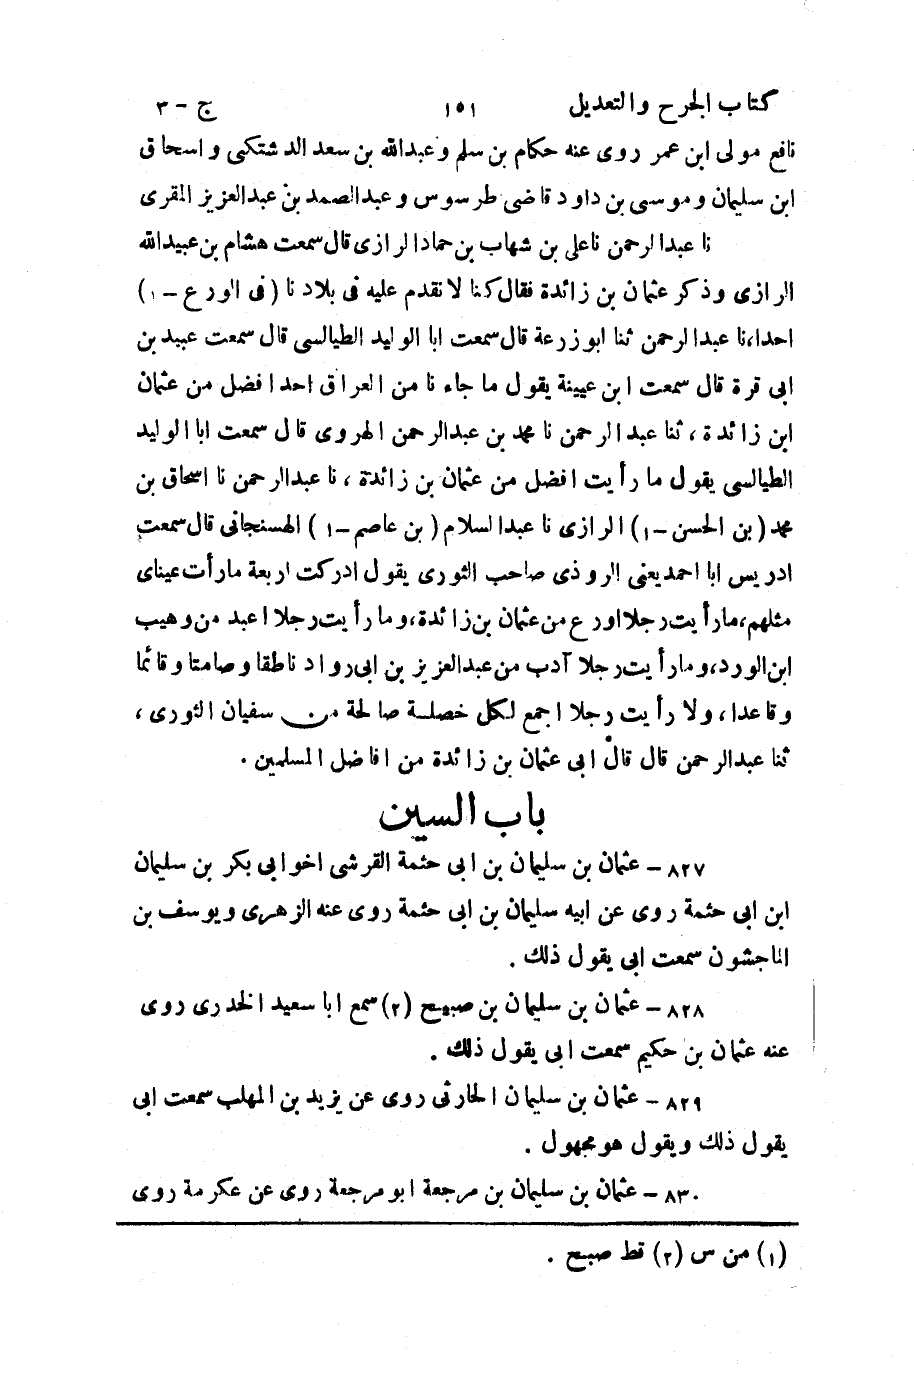 كتاب الجرح والتعديل ١٥١ ج - ٣
نافع مولى ابن عمر روى عنه حكام بن سلم وعبدالله بن سعد الدشتكى واسحاق
ابن سليمان وموسى بن داود قاضى طرسوس وعبدالصمد بن عبدالعزيز المقرى
نا عبدالرحمن نا على بن شهاب بن حماد الرازى قال سمعت هشام بن عبيدالله
الرازى وذكر عثمان بن زائدة فقال كنا لا نقدم عليه فى بلادنا (فى الورع - ١)
احدا، نا عبدالرحمن ثنا ابو زرعة قال سمعت ابا الوليد الطيالسى قال سمعت عبيد بن
ابى قرة قال سمعت ابن عيينة يقول ما جاءنا من العراق احد افضل من عثمان
ابن زائدة، ثنا عبدالرحمن نا محمد بن عبدالرحمن الهروى قال سمعت ابا الوليد
الطيالسى يقول ما رأيت افضل من عثمان بن زائدة، نا عبدالرحمن نا اسحاق بن
محمد (بن الحسن - ١) الرازى نا عبدالسلام (بن عاصم - ١) الهسنجانى قال سمعت
ادريس ابا احمد يعنى الروذى صاحب الثورى يقول ادركت اربعة ما رأت عيناى
مثلهم، ما رأيت رجلا اورع من عثمان بن زائدة، وما رأيت رجلا اعبد من وهيب
ابن الورد، وما رأيت رجلا آدب من عبدالعزيز بن ابى رواد ناطقا وصامتا وقائما
وقاعدا، ولا رأيت رجلا اجمع لكل خصلة صالحة من سفيان الثورى،
ثنا عبدالرحمن قال قال ابى عثمان بن زائدة من افاضل المسلمين.
باب السين
٨٢٧ - عثمان بن سليمان بن ابى حثمة القرشى اخو ابى بكر بن سليمان
ابن ابى حثمة روى عن ابيه سليمان بن ابى حثمة روى عنه الزهرى ويوسف بن
الماجشون سمعت ابى يقول ذلك.
٨٢٨ - عثمان بن سليمان بن صبيح (٢) سمع ابا سعيد الخدرى روى
عنه عثمان بن حكيم سمعت ابى يقول ذلك.
٨٢٩ - عثمان بن سليمان الحارثى روى عن يزيد بن المهلب سمعت ابى
يقول ذلك ويقول هو مجهول.
٨٣٠ - عثمان بن سليمان بن مرجعة ابو مرجعة روى عن عكرمة روى
(١) من س (٢) قط صبيع.